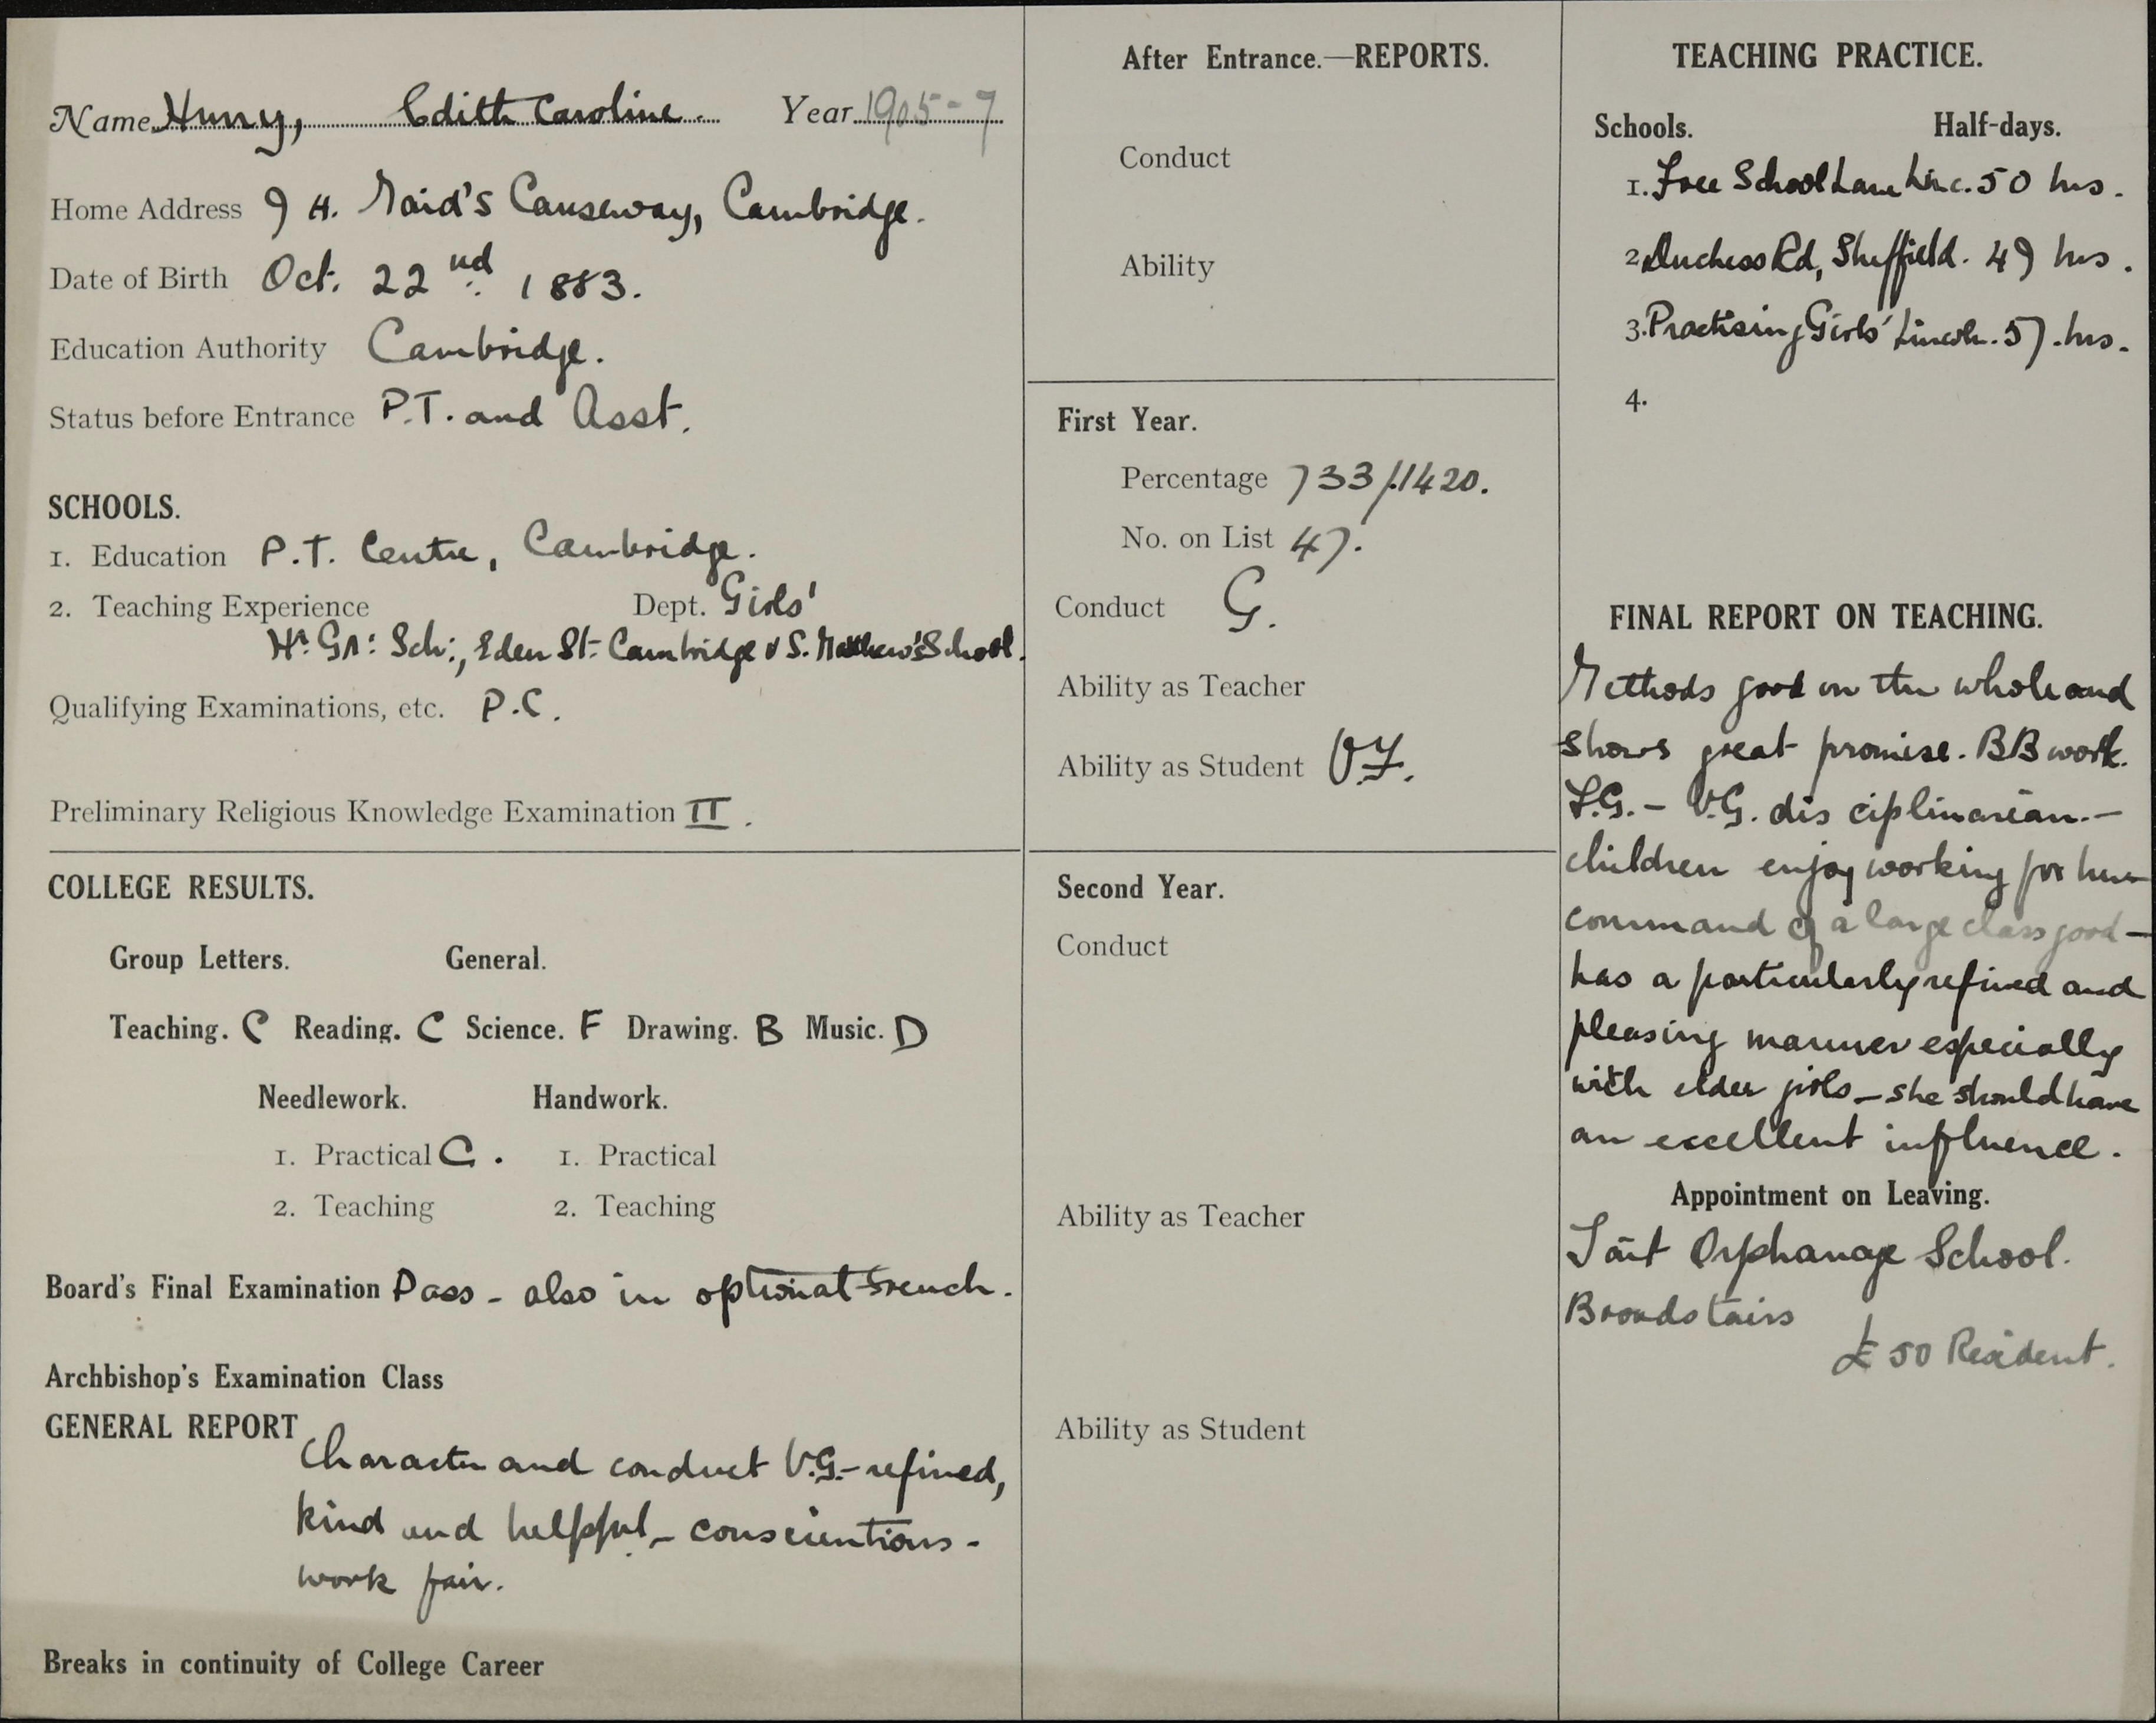 Name Hunny, Edith Caroline. Year 1905-7
Home Address 9 H. Maid's Causeway, Cambridge.
Date of Birth Oct. 22nd 1883.
Education Authority Cambridge.
Status before Entrance P.T. and Asst.
SCHOOLS.
1. Education P.T. Centre, Cambridge.
2. Teaching Experience Dept. Girls'
Hr. Gr: Sch:, Eden St. Cambridge & S. Matthew's School.
Qualifying Examinations, etc. P.C.
Preliminary Religious Knowledge Examination II.
COLLEGE RESULTS.
Group Letters. General.
Teaching. C Reading. C Science. F Drawing. B Music. D
Needlework. Handwork.
1. Practical C. 1. Practical
2. Teaching 2. Teaching
Board's Final Examination Pass - also in optional French.
Archbishop's Examination Class
GENERAL REPORT
Character and conduct V.G. - refined,
kind and helpful - conscientious -
work fair.
Breaks in continuity of College Career
After Entrance.—REPORTS.
Conduct
Ability
First Year.
Percentage 733/1420.
No. on List 47.
Conduct G.
Ability as Teacher
Ability as Student V.F.
Second Year.
Conduct
Ability as Teacher
Ability as Student
TEACHING PRACTICE.
Schools. Half-days.
1. Free School Lane Linc. 50 hrs.
2. Duchess Rd, Sheffield. 49 hrs.
3. Practising Girls' Lincoln. 57. hrs.
4.
FINAL REPORT ON TEACHING.
Methods good on the whole and
shows great promise. BB work.
F.G. - V.G. disciplinarian. -
children enjoy working for her
command of a large class good -
has a particularly refined and
pleasing manner especially
with elder girls - she should have
an excellent influence.
Appointment on Leaving.
Tait Orphanage School.
Broadstairs
£50 Resident.